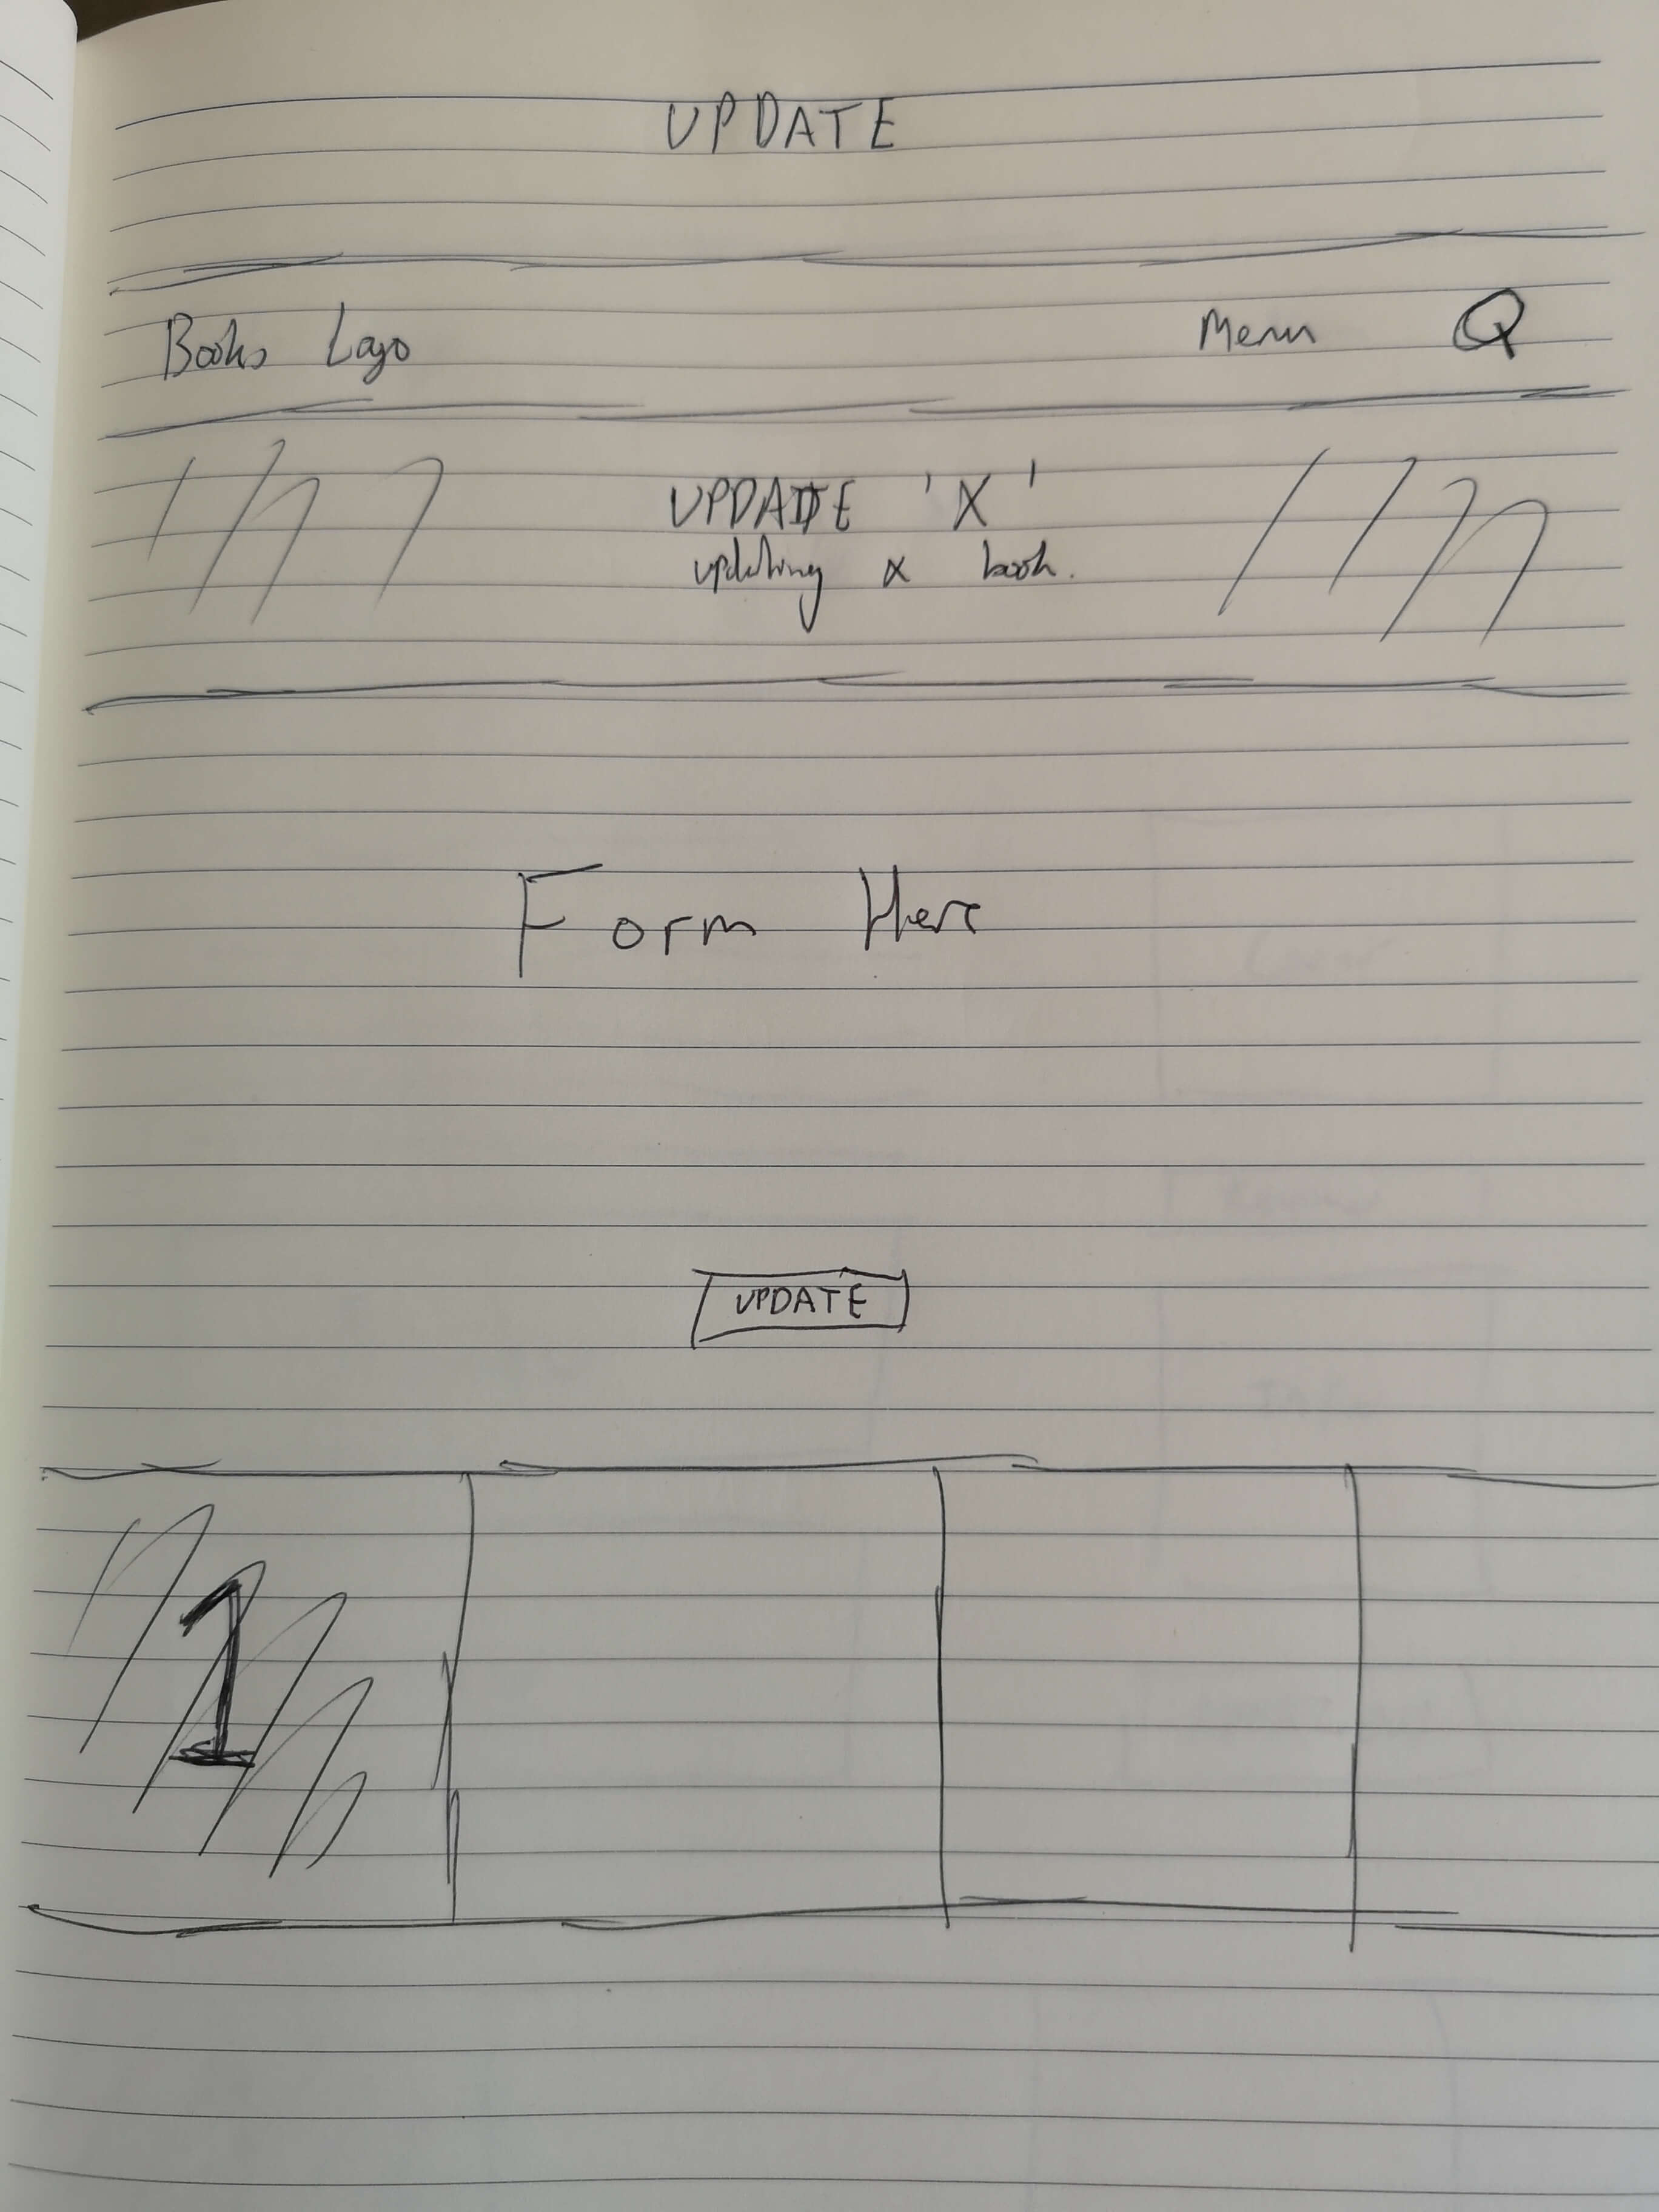 UPDATE
Books Logo Menu Q
UPDATE 'X'
updating x book.
Form Here
UPDATE
1